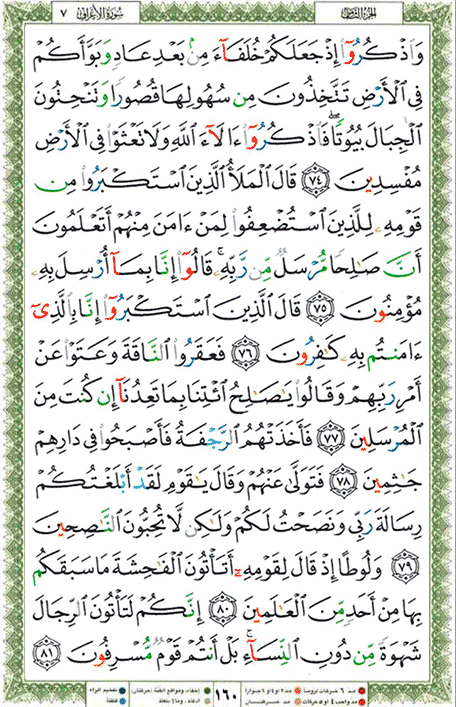 سُورَةُ الْأَعْرَافِ ٧
وَاذْكُرُوا إِذْ جَعَلَكُمْ خُلَفَاءَ مِنْ بَعْدِ عَادٍ وَبَوَّأَكُمْ
فِي الْأَرْضِ تَتَّخِذُونَ مِن سُهُولِهَا قُصُورًا وَتَنْحِتُونَ
الْجِبَالَ بُيُوتًا ۖ فَاذْكُرُوا ءَالَاءَ اللَّهِ وَلَا تَعْثَوْا فِي الْأَرْضِ
مُفْسِدِينَ ﴿٧٤﴾ قَالَ الْمَلَأُ الَّذِينَ اسْتَكْبَرُوا مِن
قَوْمِهِ لِلَّذِينَ اسْتُضْعِفُوا لِمَنْ ءَامَنَ مِنْهُمْ أَتَعْلَمُونَ
أَنَّ صَالِحًا مُّرْسَلٌ مِّن رَّبِّهِ ۚ قَالُوا إِنَّا بِمَا أُرْسِلَ بِهِ
مُؤْمِنُونَ ﴿٧٥﴾ قَالَ الَّذِينَ اسْتَكْبَرُوا إِنَّا بِالَّذِي
ءَامَنتُم بِهِ كَافِرُونَ ﴿٧٦﴾ فَعَقَرُوا النَّاقَةَ وَعَتَوْا عَنْ
أَمْرِ رَبِّهِمْ وَقَالُوا يَاصَالِحُ ائْتِنَا بِمَا تَعِدُنَا إِن كُنتَ مِنَ
الْمُرْسَلِينَ ﴿٧٧﴾ فَأَخَذَتْهُمُ الرَّجْفَةُ فَأَصْبَحُوا فِي دَارِهِمْ
جَاثِمِينَ ﴿٧٨﴾ فَتَوَلَّى عَنْهُمْ وَقَالَ يَاقَوْمِ لَقَدْ أَبْلَغْتُكُمْ
رِسَالَةَ رَبِّي وَنَصَحْتُ لَكُمْ وَلَكِن لَّا تُحِبُّونَ النَّاصِحِينَ
﴿٧٩﴾ وَلُوطًا إِذْ قَالَ لِقَوْمِهِ أَتَأْتُونَ الْفَاحِشَةَ مَا سَبَقَكُم
بِهَا مِنْ أَحَدٍ مِّنَ الْعَالَمِينَ ﴿٨٠﴾ إِنَّكُمْ لَتَأْتُونَ الرِّجَالَ
شَهْوَةً مِّن دُونِ النِّسَاءِ ۚ بَلْ أَنتُمْ قَوْمٌ مُّسْرِفُونَ ﴿٨١﴾
١٦٠